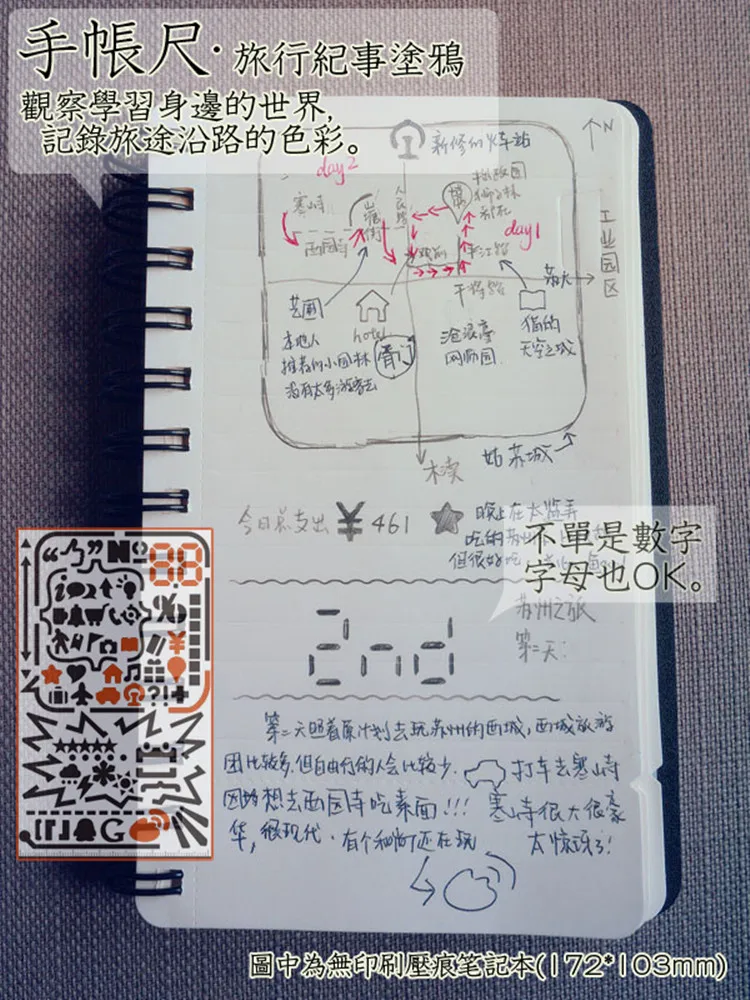 手帳尺·旅行紀事塗鴉
觀察學習身邊的世界,
記錄旅途沿路的色彩。
N
新修的火车站
day2
寒山寺
西园寺
山塘街
人民路
拙政园
狮子林
day1
平江路
干将路
工业园区
苏大
艺圃
本地人
推荐的小园林
没有太多游客去
hotel
胥门
沧浪亭
网师园
猫的
天空之城
姑苏城
木渎
今日总支出 ¥ 461
晚上在太监弄
吃的苏
但很好吃
不單是數字
字母也OK。
2nd
苏州之旅
第二天:
第二天照着原计划去玩苏州的西城,西城旅游
团比较多,但自由行的人会比较少.
打车去寒山寺
因为想去西园寺吃素面!!!
寒山寺很大很豪
华,很现代.有个和尚还在玩
太惊讶了!
圖中為無印刷壓痕笔記本(172*103mm)